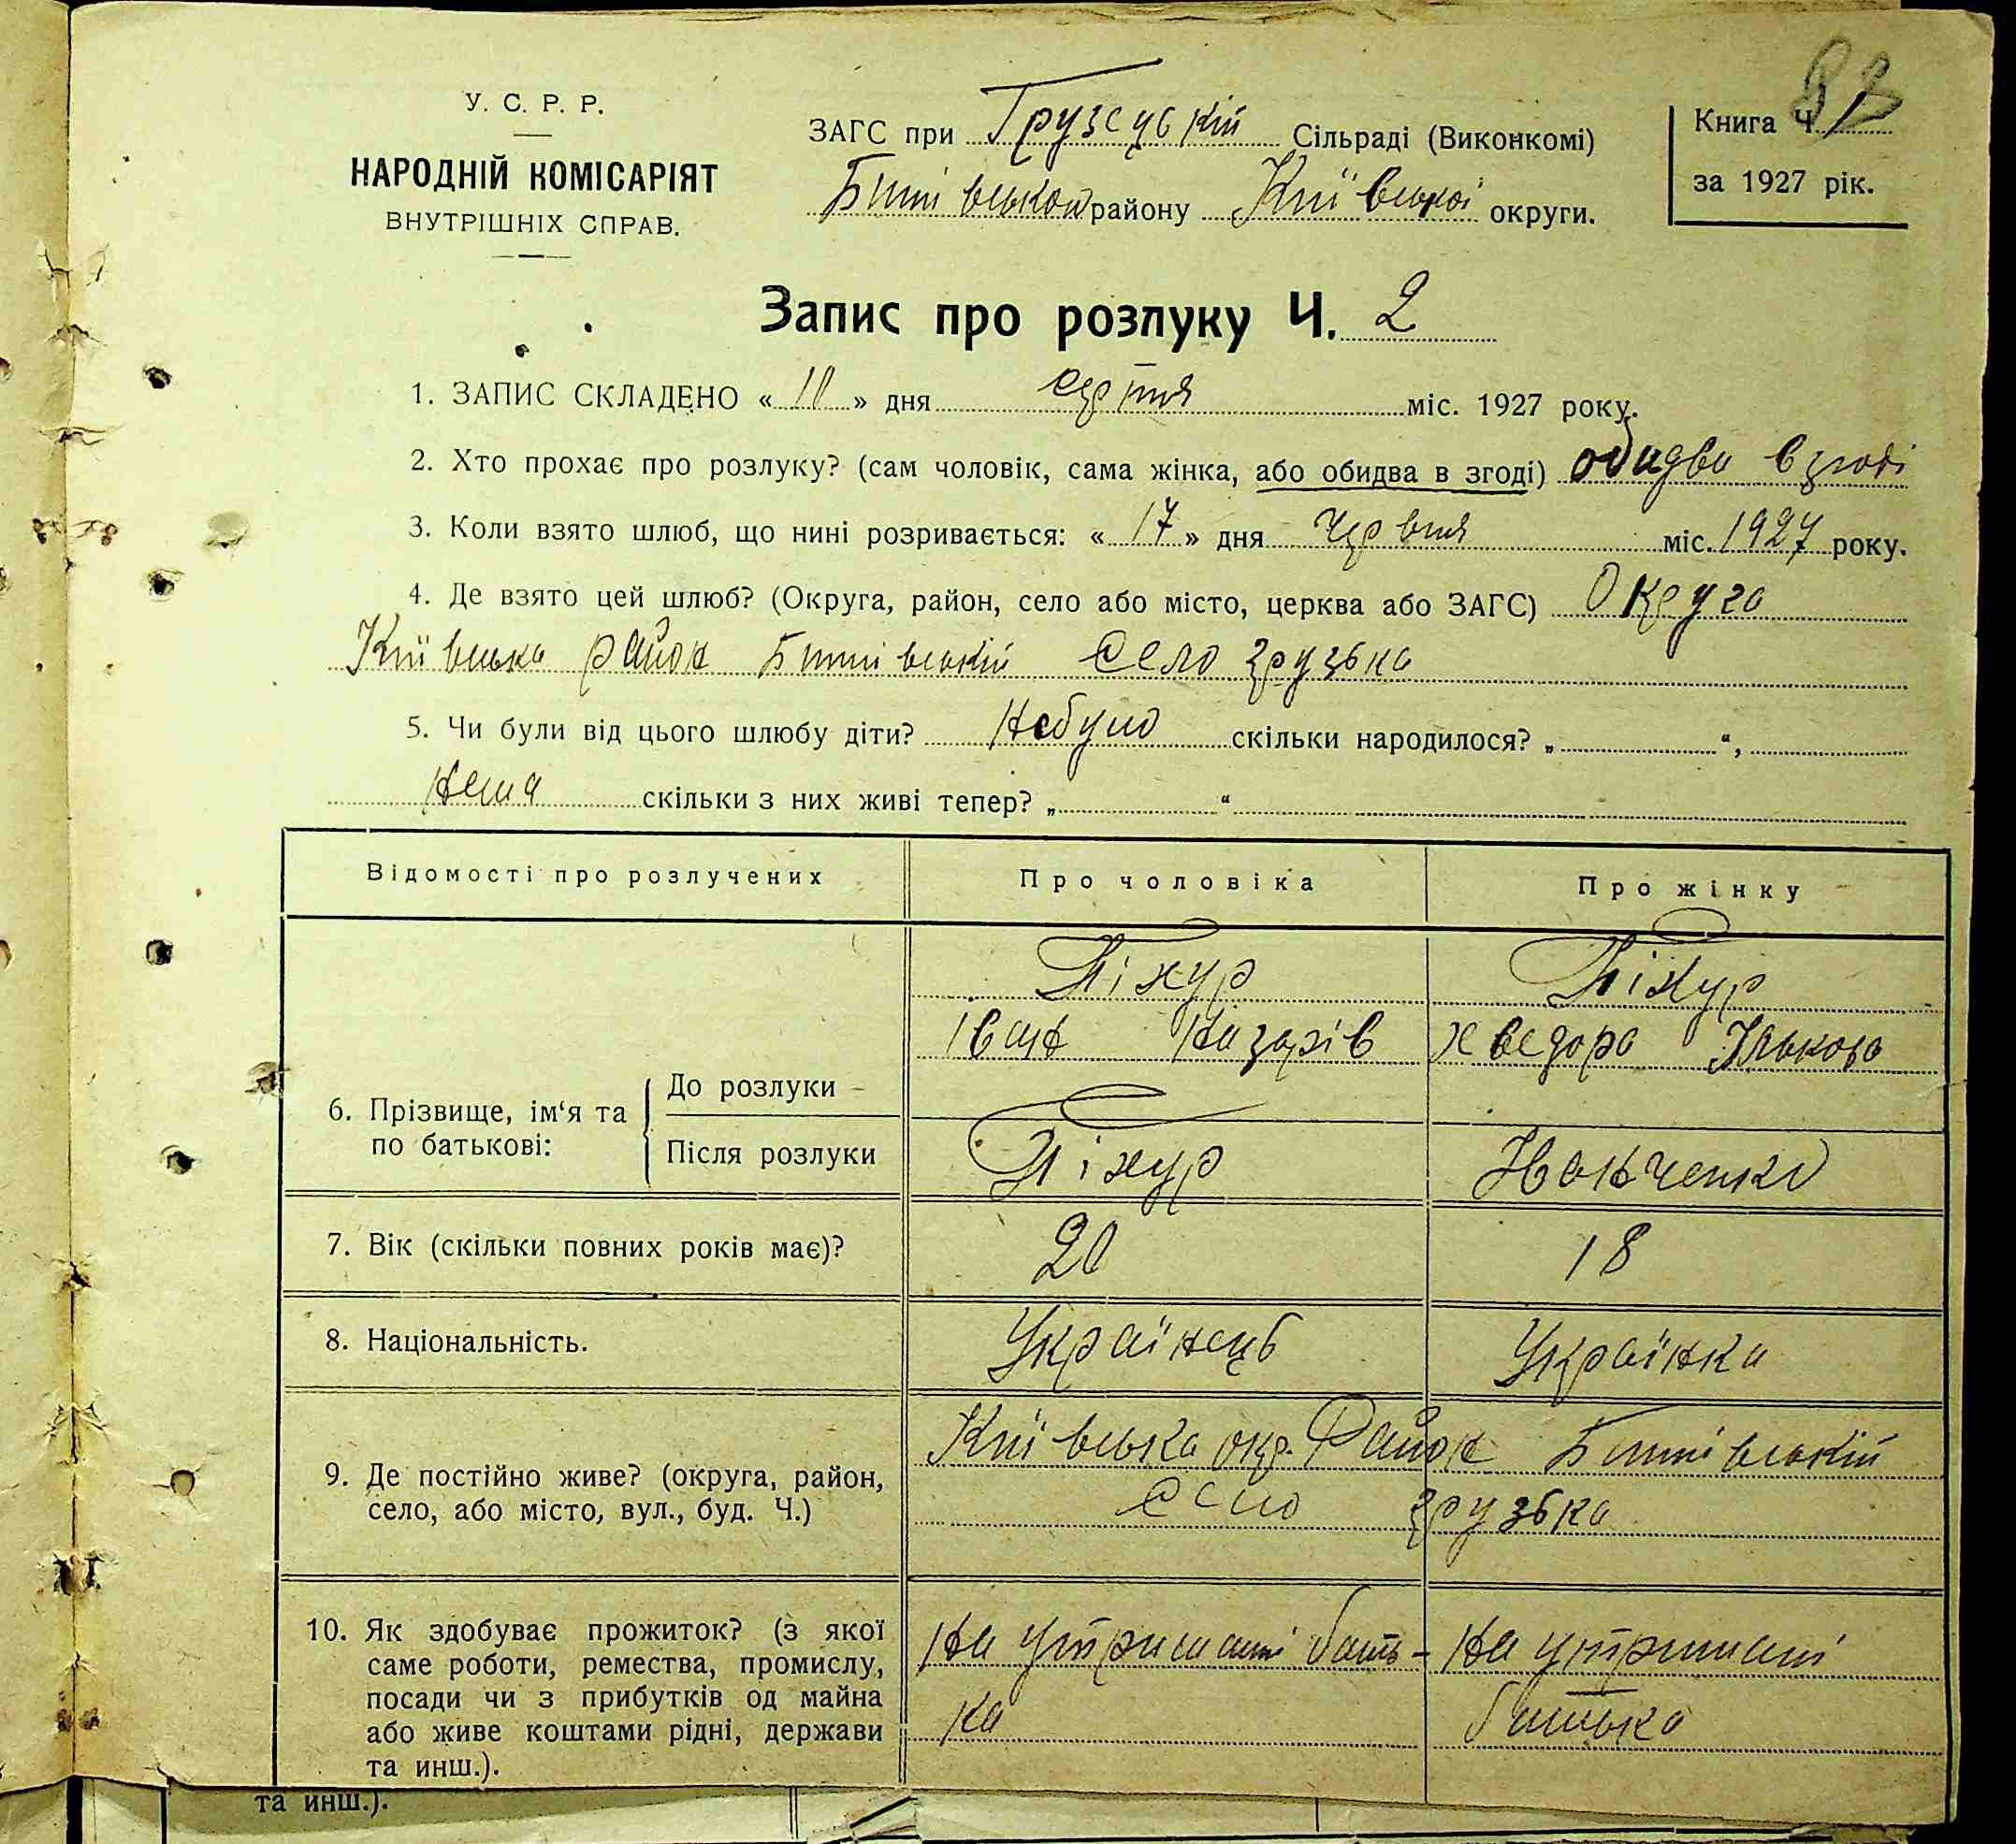 У. С. Р. Р.
НАРОДНІЙ КОМІСАРІЯТ
ВНУТРІШНІХ СПРАВ.
ЗАГС при Грузсцькій Сільраді (Виконкомі)
Бишівського району Київської округи.
Книга Ч. 1
за 1927 рік.
Запис про розлуку Ч. 2
1. ЗАПИС СКЛАДЕНО « 10 » дня серпня міс. 1927 року.
2. Хто прохає про розлуку? (сам чоловік, сама жінка, або обидва в згоді) обидва в згоді
3. Коли взято шлюб, що нині розривається: « 17 » дня червня міс. 1927 року.
4. Де взято цей шлюб? (Округа, район, село або місто, церква або ЗАГС) Округа
Київська район Бишівський село Грузька
5. Чи були від цього шлюбу діти? Небуло скільки народилося? „ “,
Нема скільки з них живі тепер? „ “
Відомості про розлучених Про чоловіка Про жінку
Піхур Піхур
Іван Назарів Хведора Ількова
6. Прізвище, ім‘я та по батькові:
До розлуки
Після розлуки Піхур Нольченко
7. Вік (скільки повних років має)? 20 18
8. Національність. Українець Українка
9. Де постійно живе? (округа, район, Київська окр. Район Бишівський
село, або місто, вул., буд. Ч.) село Грузька
10. Як здобуває прожиток? (з якої На утриманні бать- На утримані
саме роботи, ремества, промислу,
посади чи з прибутків од майна ка батька
або живе коштами рідні, держави
та инш.).
та инш.).